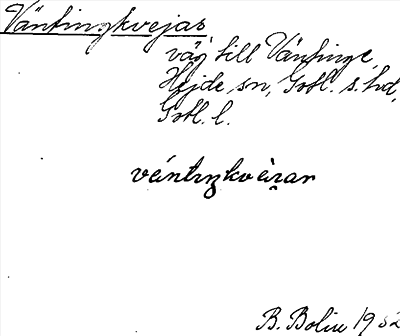 Väntingkvejas
väg till Väntinge,
Hejde sn, Gotl. s. hd,
Gotl. l.
väntıŋkvèi̯ar
B. Bolin 1932